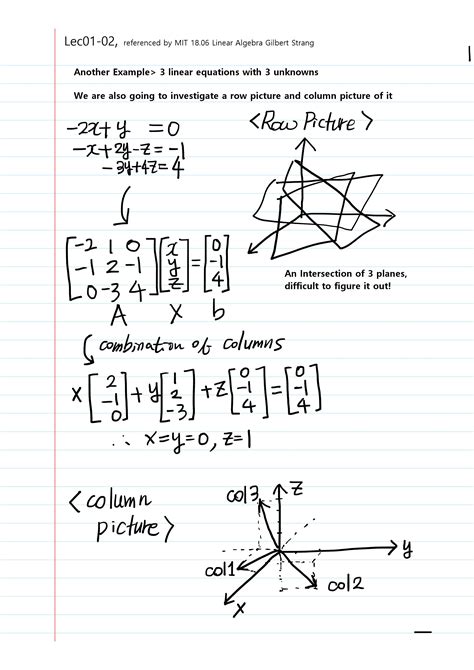 Lec01-02, referenced by MIT 18.06 Linear Algebra Gilbert Strang
Another Example> 3 linear equations with 3 unknowns
We are also going to investigate a row picture and column picture of it
-2x+y =0
-x+2y-z=-1
-3y+4z=4
<Row Picture>
[-2 1 0] [x] [0]
[-1 2 -1] [y] = [-1]
[0 -3 4] [z] [4]
A X b
An Intersection of 3 planes,
difficult to figure it out!
combination of columns
x[2 -1 0] + y[1 2 -3] + z[0 -1 4] = [0 -1 4]
∴ x=y=0, z=1
<column
picture>
col3 z
y
col1
col2
x